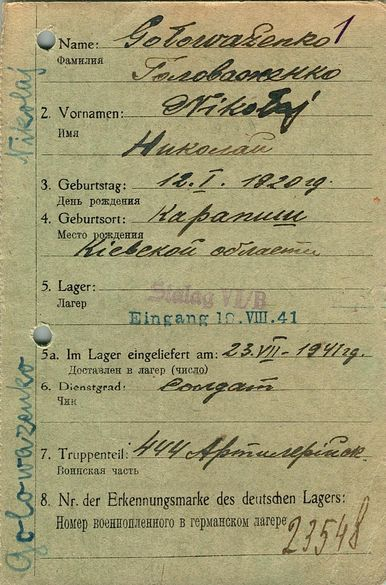 1
Name: Golowaženko
Фамилия Головаженко
2. Vornamen: Nikolaj
Имя
Николай
3. Geburtstag: 12. I. 1920 г.
День рождения
4. Geburtsort: Карапиши
Место рождения
Кіевской области
5. Lager:
Лагер
Stalag VI/B
Eingang 19. VIII. 41
5a. Im Lager eingeliefert am: 23. VII - 1941 гг.
Доставлен в лагер (число)
6. Dienstgrad: Солдат
Чин
7. Truppenteil: 444 Артилерійск.
Воинская часть
8. Nr. der Erkennungsmarke des deutschen Lagers:
Номер военнопленного в германском лагере
23548
Golowazenko
Nikolaj